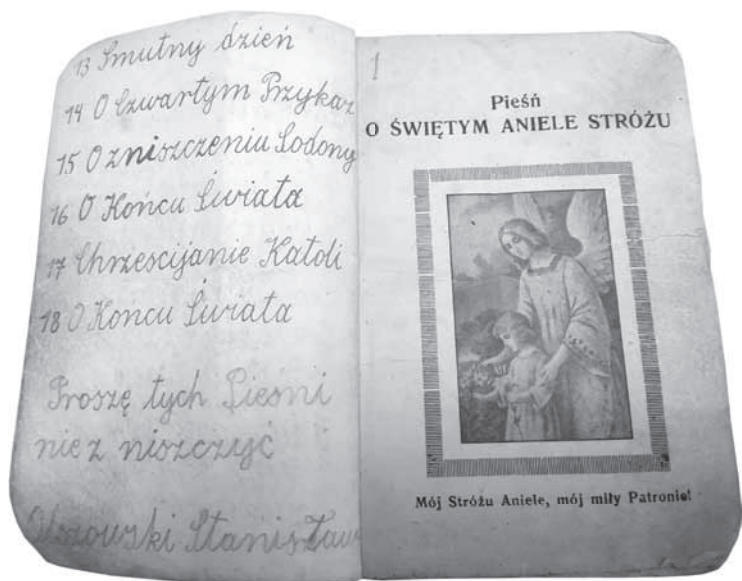 13 Smutny dzień
14 O Czwartym Przykaz
15 O zniszczeniu Sodony
16 O Końcu Świata
17 Chrzescijanie Katoli
18 O Koncu Świata
Proszę tych Piesni
nie z niszczyć
Stanisław
1
Pieśń
O ŚWIĘTYM ANIELE STRÓŻU
Mój Stróżu Aniele, mój miły Patronie!